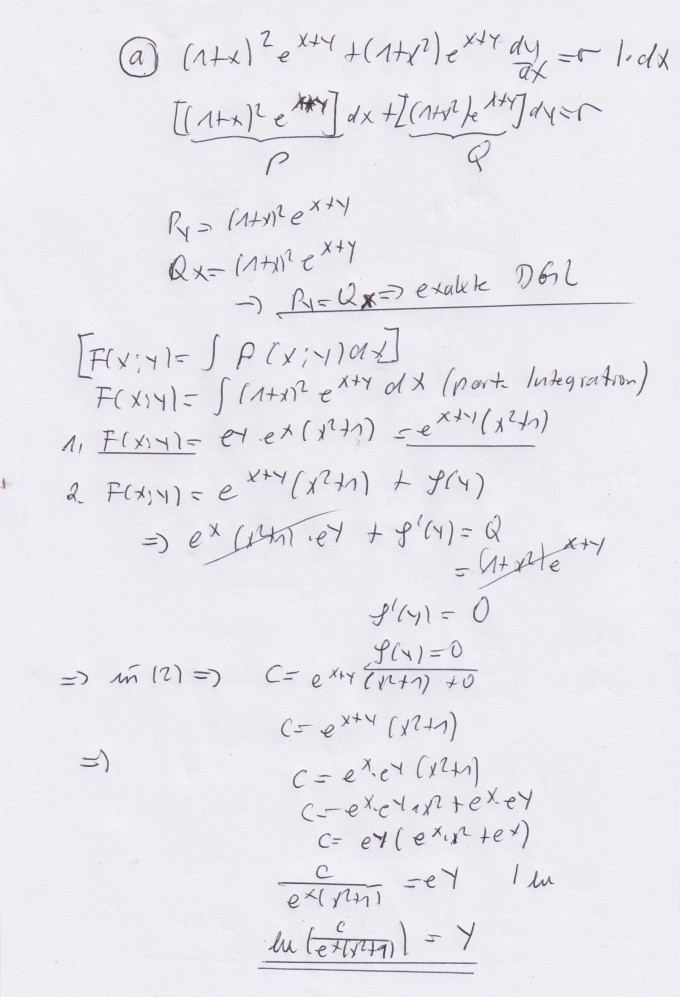 (a) (1+x)² e^{x+y} + (1+x²) e^{x+y} dy/dx = 0 |·dx
[(1+x)² e^{x+y}] dx + [(1+x²) e^{x+y}] dy = 0
P Q
P_y = (1+x)² e^{x+y}
Q_x = (1+x)² e^{x+y}
→ P_y = Q_x => exakte DGL
[F(x;y) = ∫ P(x;y) dx]
F(x;y) = ∫ (1+x)² e^{x+y} dx (part. Integration)
1, F(x;y) = e^y · e^x (x²+1) = e^{x+y} (x²+1)
2. F(x;y) = e^{x+y} (x²+1) + φ(y)
=> e^x (x²+1) · e^y + φ'(y) = Q
= (1+x²) e^{x+y}
φ'(y) = 0
φ(y) = 0
=> in (2) => C = e^{x+y} (x²+1) + 0
C = e^{x+y} (x²+1)
=> C = e^x · e^y (x²+1)
C = e^x · e^y · x² + e^x · e^y
C = e^y (e^x · x² + e^x)
C/(e^x (x²+1)) = e^y | ln
ln (C/(e^x (x²+1))) = y